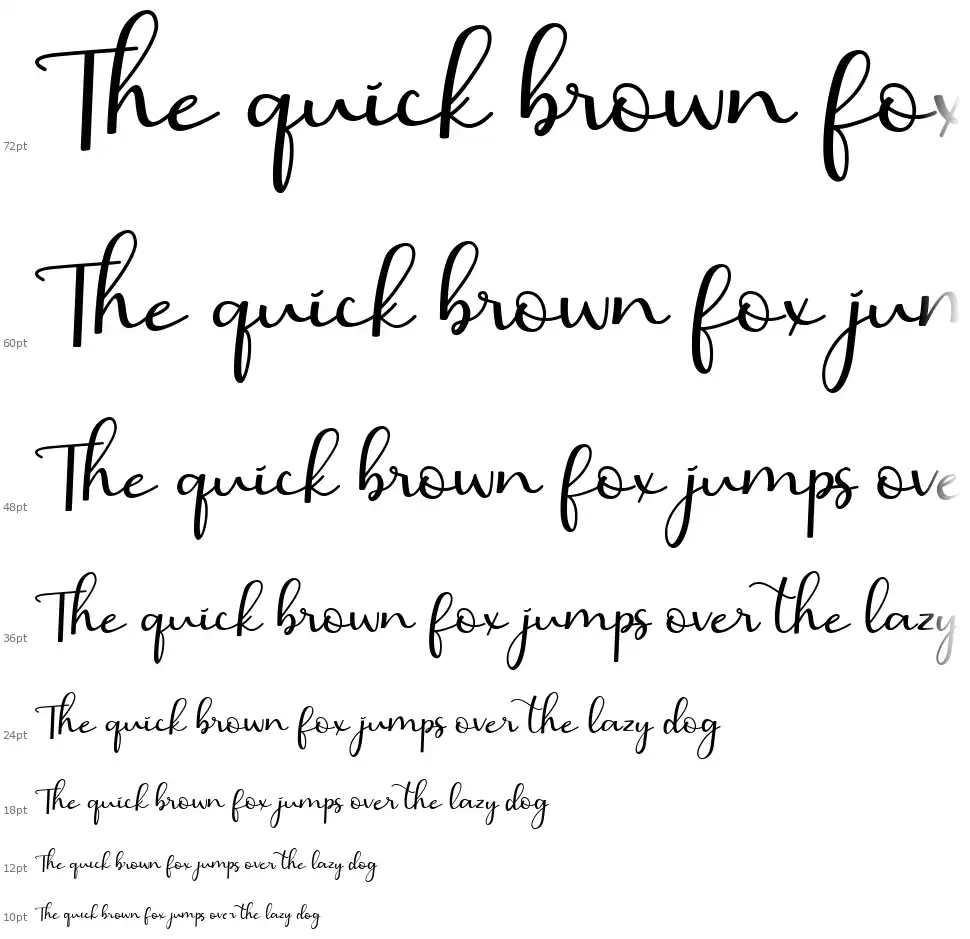 72pt The quick brown fox
60pt The quick brown fox jun
48pt The quick brown fox jumps ove
36pt The quick brown fox jumps over the lazy
24pt The quick brown fox jumps over the lazy dog
18pt The quick brown fox jumps over the lazy dog
12pt The quick brown fox jumps over the lazy dog
10pt The quick brown fox jumps over the lazy dog